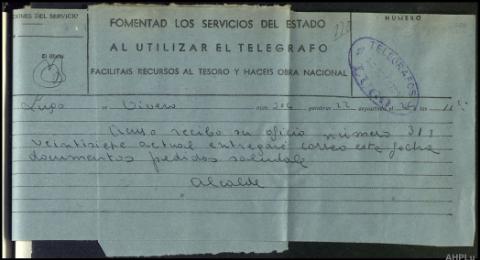 ONES DEL SERVICIO
FOMENTAD LOS SERVICIOS DEL ESTADO
NUMERO
AL UTILIZAR EL TELEGRAFO
FACILITAIS RECURSOS AL TESORO Y HACEIS OBRA NACIONAL
TELEGRAFOS
Lugo de Vivero núm 206 palabras 22 depositado el 28
Acuso recibo su oficio número 313
veintisiete actual entregaré correo esta fecha
documentos pedidos salúdale
Alcalde
AHPLu